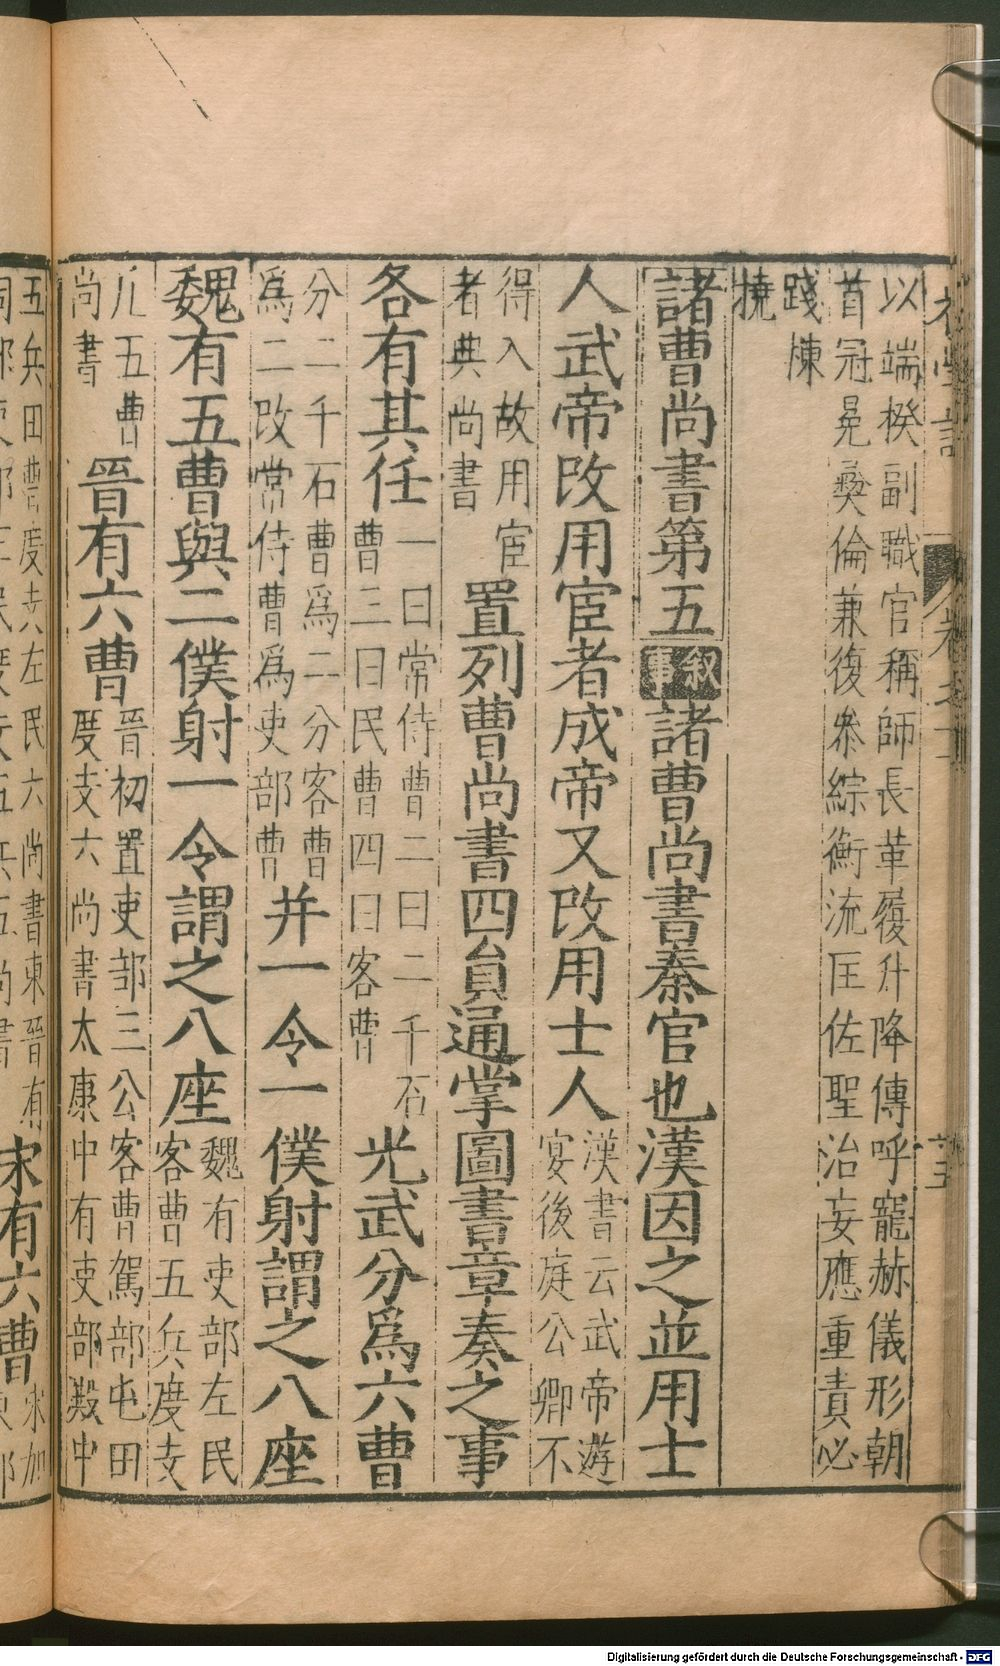 以端揆副職官稱師長革履升降傳呼寵赫儀形朝
首冠晃彜倫兼復叅綜衡流匡佐聖治妄應重責必
踐棟
撓
諸曹尚書第五
叙事
諸曹尚書秦官也漢因之並用士
人武帝改用宦者成帝又改用士人
漢書云武帝遊
宴後庭公卿不
得入故用宦
者典尚書
置列曹尚書四員通掌圖書章奏之事
各有其任
一曰常侍曹二曰二千石
曹三曰民曹四曰客曹
光武分爲六曹
分二千石曹爲二分客曹
爲二改常侍曹爲吏部曹
并一令一僕射謂之八座
魏有五曹與二僕射一令謂之八座
魏有吏部左民
客曹五兵度支
凢五曹
尚書
晉有六曹
晉初置吏部三公客曹駕部屯田
度支六尚書太康中有吏部殿中
五兵田曹度支左民六尚書東晉有
宋有六曹
宋加
Digitalisierung gefördert durch die Deutsche Forschungsgemeinschaft - DFG